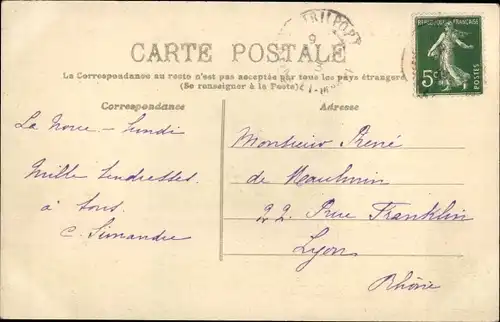 TRILPORT
CARTE POSTALE
La Correspondance au recto n'est pas acceptée par tous les pays étrangers
(Se renseigner à la Poste)
Correspondance
Adresse
REPUBLIQUE FRANÇAISE
5c
POSTES
La Noue - Lundi
Mille tendresses
à tous.
C. Simandre
Monsieur René
de Maulmin
22 Rue Franklin
Lyon
Rhône